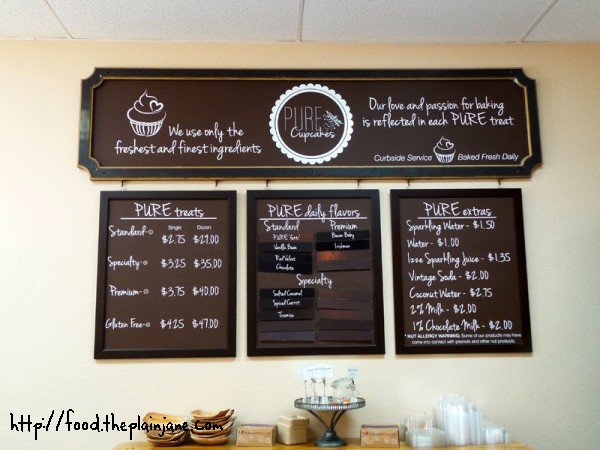 We use only the
freshest and finest ingredients
PURE
Cupcakes
Our love and passion for baking
is reflected in each PURE treat
Curbside Service Baked Fresh Daily
PURE treats
Single Dozen
Standard- $2.75 $29.00
Specialty- $3.25 $35.00
Premium- $3.75 $40.00
Gluten Free- $4.25 $47.00
PURE daily flavors
Standard Premium
PURE
Vanilla Bean
Red Velvet
Chocolate
Specialty
Salted Caramel
Spiced Carrot
Tiramisu
PURE extras
Sparkling Water - $1.50
Water - $1.00
Izze Sparkling Juice - $1.35
Vintage Soda - $2.00
Coconut Water - $2.75
2% Milk - $2.00
1% Chocolate Milk - $2.00
* NUT ALLERGY WARNING: Some of our products may have
come in/to contact with peanuts and other nut products
http://food.theplainjane.com